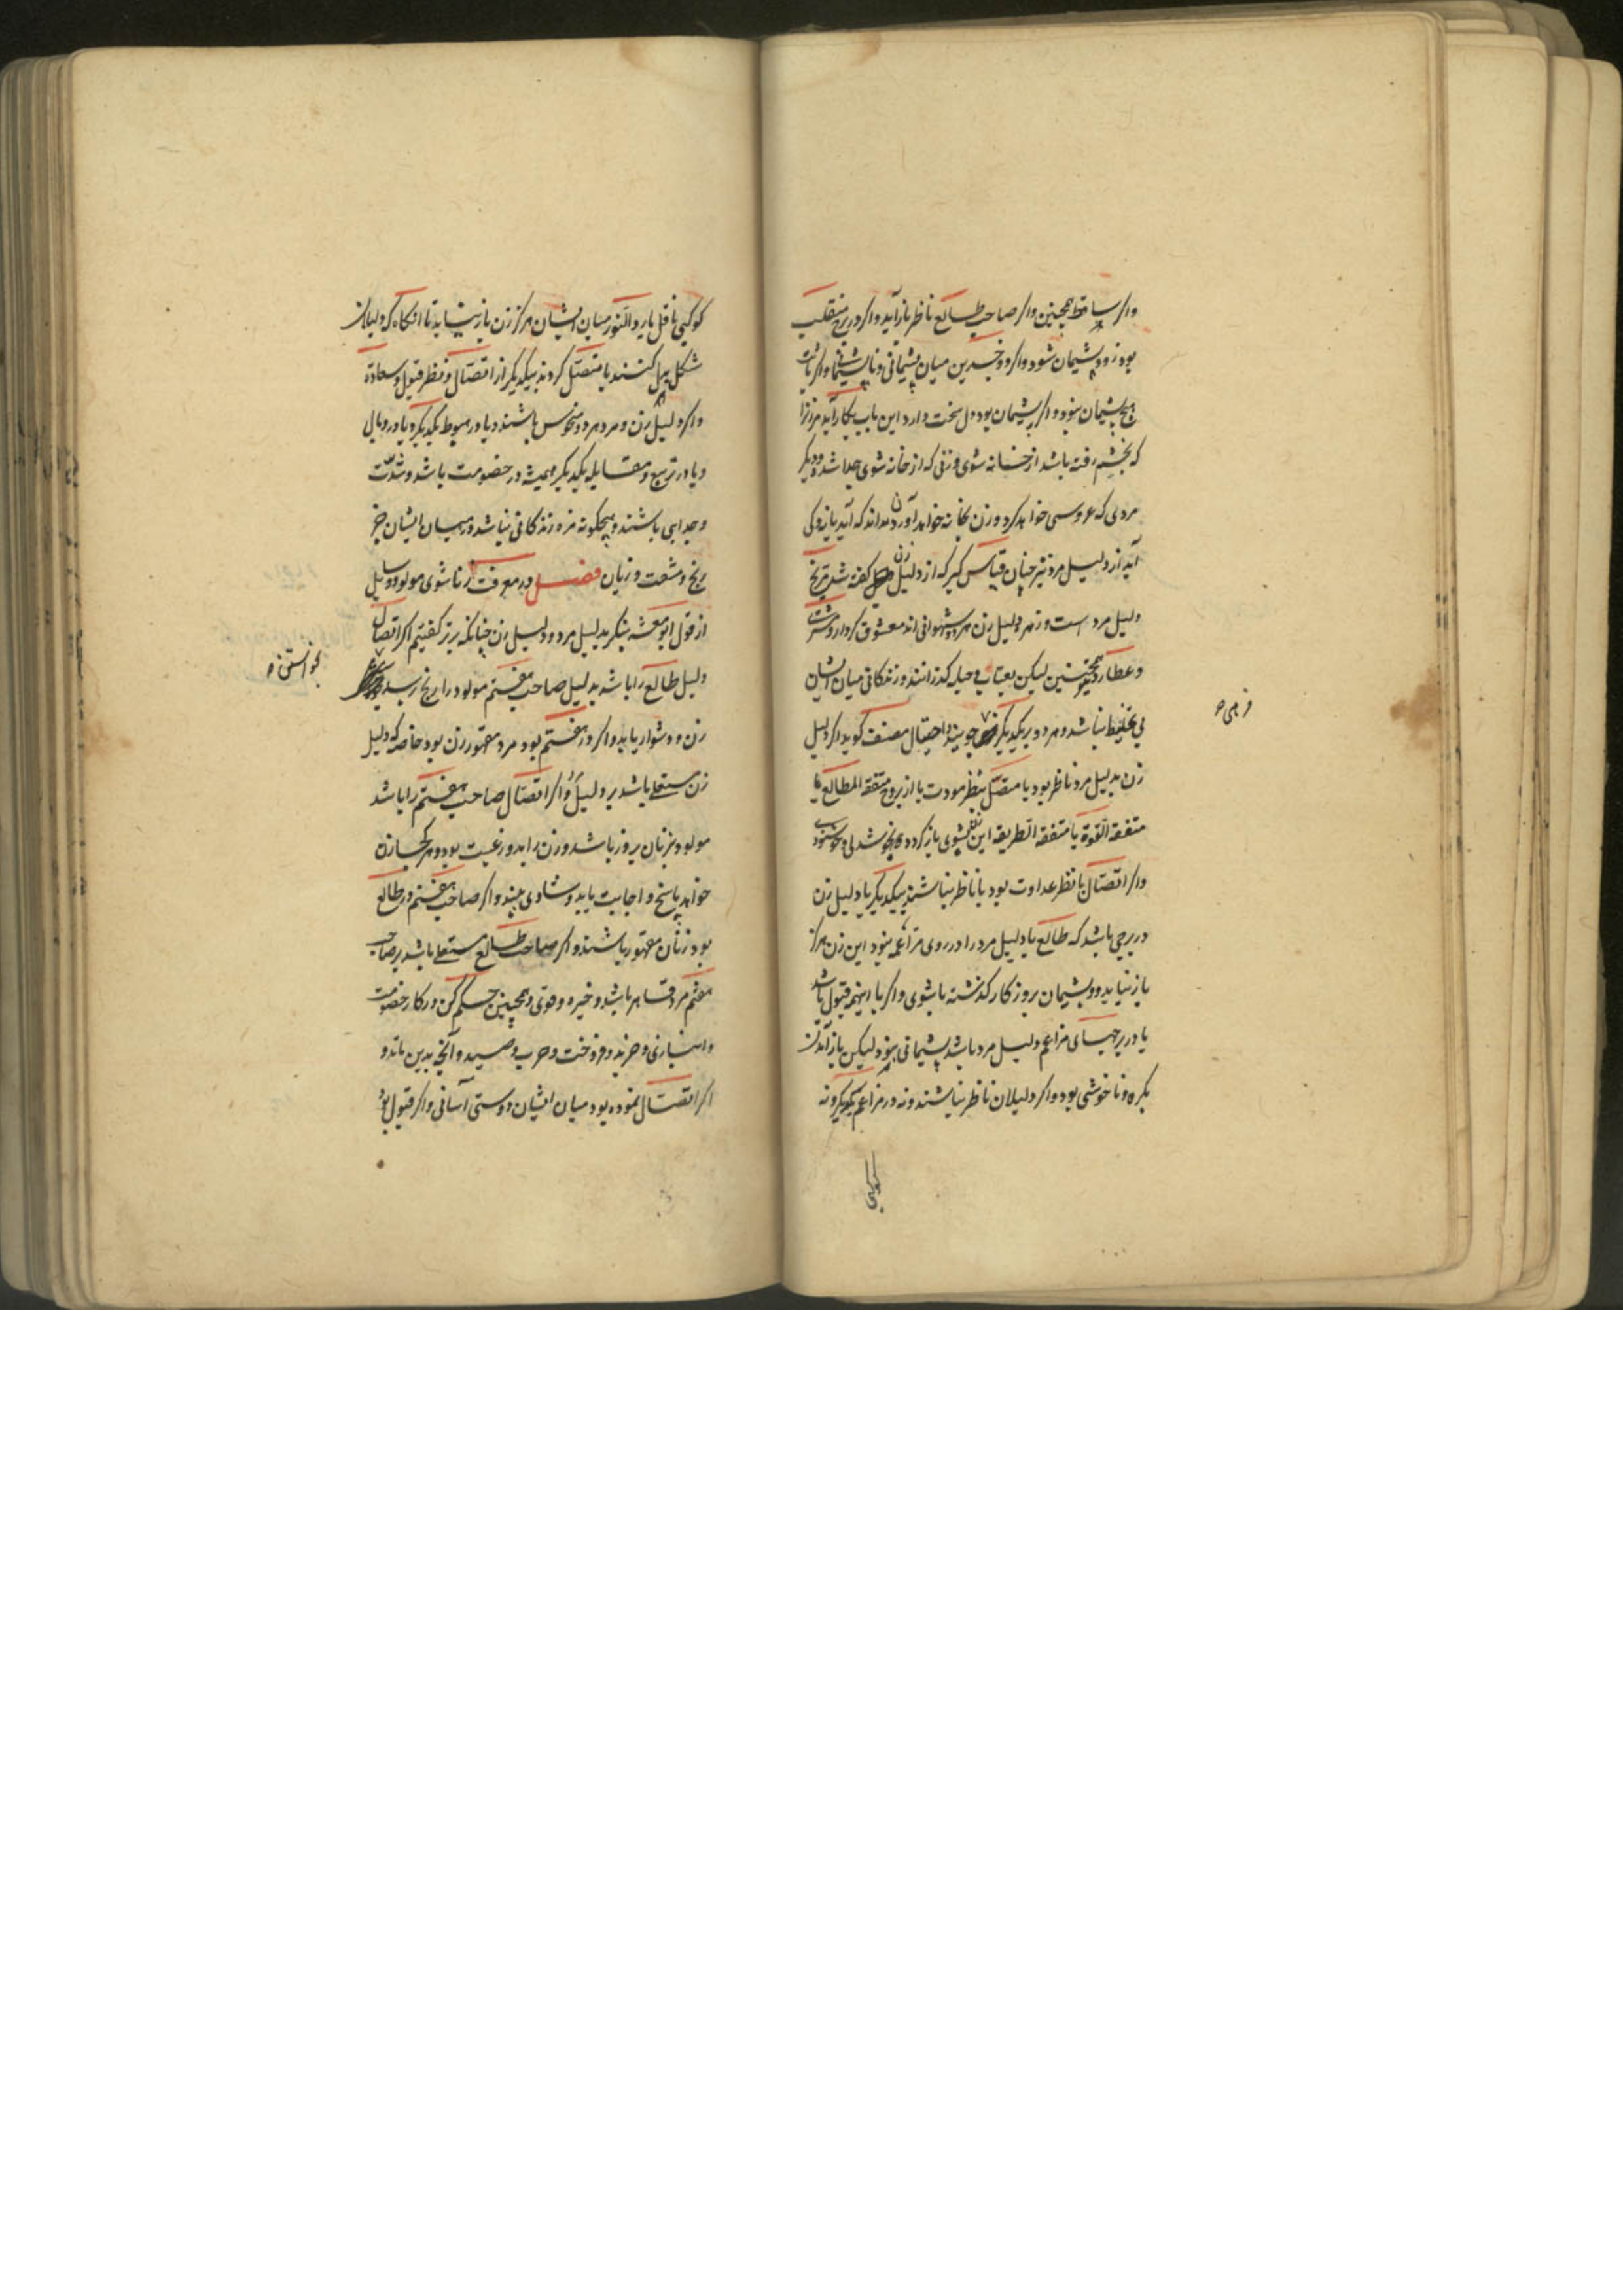 واگر ساقط همچنین واگر صاحب طالع ناظر باز آید واگر در برج منقلب
بود زود پشیمان شود واگر ذوجسدین میان پشیمانی و ناپشیمانی واگر ثابت
هیچ پشیمان نبود واگر پشیمان بود دل سخت دارد این باب بکار آید مر زنرا
که بخشم رفته باشد از خانه شوی و زنی که از خانه شوی جدا شد و دیگر
مردی که عروسی خواهد کرد و زن بخانه خواهد آوردن بداند که آید یا نه و کی
آید از دلیل مرد نیز چنان قیاس گیر که از دلیل زن گفته شد مریخ
دلیل مرد است و زهره دلیل زن هر دو شهوانی اند معشوق کردار و مشتری
و عطارد همچنین لیکن بعیاب و حیله گذرانند و زندگانی میان ایشان
بی تخلیط نباشد و هر دو بر یکدیگر جویند و احتیال مصنف گوید اگر دلیل
زن بدلیل مرد ناظر بود یا متصل بنظر مودت یا از بروج متفقه المطالع یا
متفقه القوة یا متفقه الطریقه این زن بشوی باز گردد بخوشدلی و خوشنودی
واگر اتصال با نظر عداوت بود یا ناظر نباشند بیکدیگر یا دلیل زن
در برجی باشد که طالع یا دلیل مرد را در روی مزاعمه نبود این زن هرگز
باز نیاید و پشیمان بروزگار گذشته با شوی واگر با اینهمه قبول باشد
یا در برجهای مزاعم دلیل مرد باشد پشیمانی بود لیکن باز آمدن
بکره و ناخوشی بود واگر دلیلان ناظر نباشند و نه در مزاعم یکدیگر و نه
کوکبی
کوکبی ناقل یا رد النور میان ایشان هرگز زن باز نیاید تا آنگاه که دلیلان
شکل بدل کنند یا متصل گردند بیکدیگر از اتصال و نظر قبول و سعادة
واگر دلیل زن و مرد هر دو منحوس باشند و یا در هبوط یکدیگر و یا در وبال
و یا در تربیع و مقابله یکدیگر همیشه در خصومت باشد و شدت
و جدایی باشند و هیچگونه مزه زندگانی نباشد و در میان ایشان جز
رنج و مشقت و زیان فصل در معرفت زناشوی مولود و سایل
از قول ابومعشر بنگر بدلیل مرد و دلیل زن چنانکه برتر گفتیم اگر اتصال
دلیل طالع را باشد بدلیل صاحب هفتم مولود را رنج رسد
زن و دشوار یابد واگر در هفتم بود مرد مقهور زن بود خاصه که دلیل
زن مستعلی باشد بر دلیل او واگر اتصال صاحب هفتم را باشد
مولود بزنان پیروز باشد و زن را بدو رغبت بود و هر کجا زن
خواهد پاسخ و اجابت یابد و شادی بیند واگر صاحب هفتم در طالع
بود زنان مقهور باشند واگر صاحب طالع مستعلی باشد بر صاحب
هفتم مرد قاهر باشد و خیره و قوی و همچنین حکم کن در کار خصومت
و انبازی و خرید و فروخت و حرب و صید و آنچ بدین ماند و
اگر اتصال نموده بود میان ایشان دوستی آسانی واگر قبول بود
بخواستن